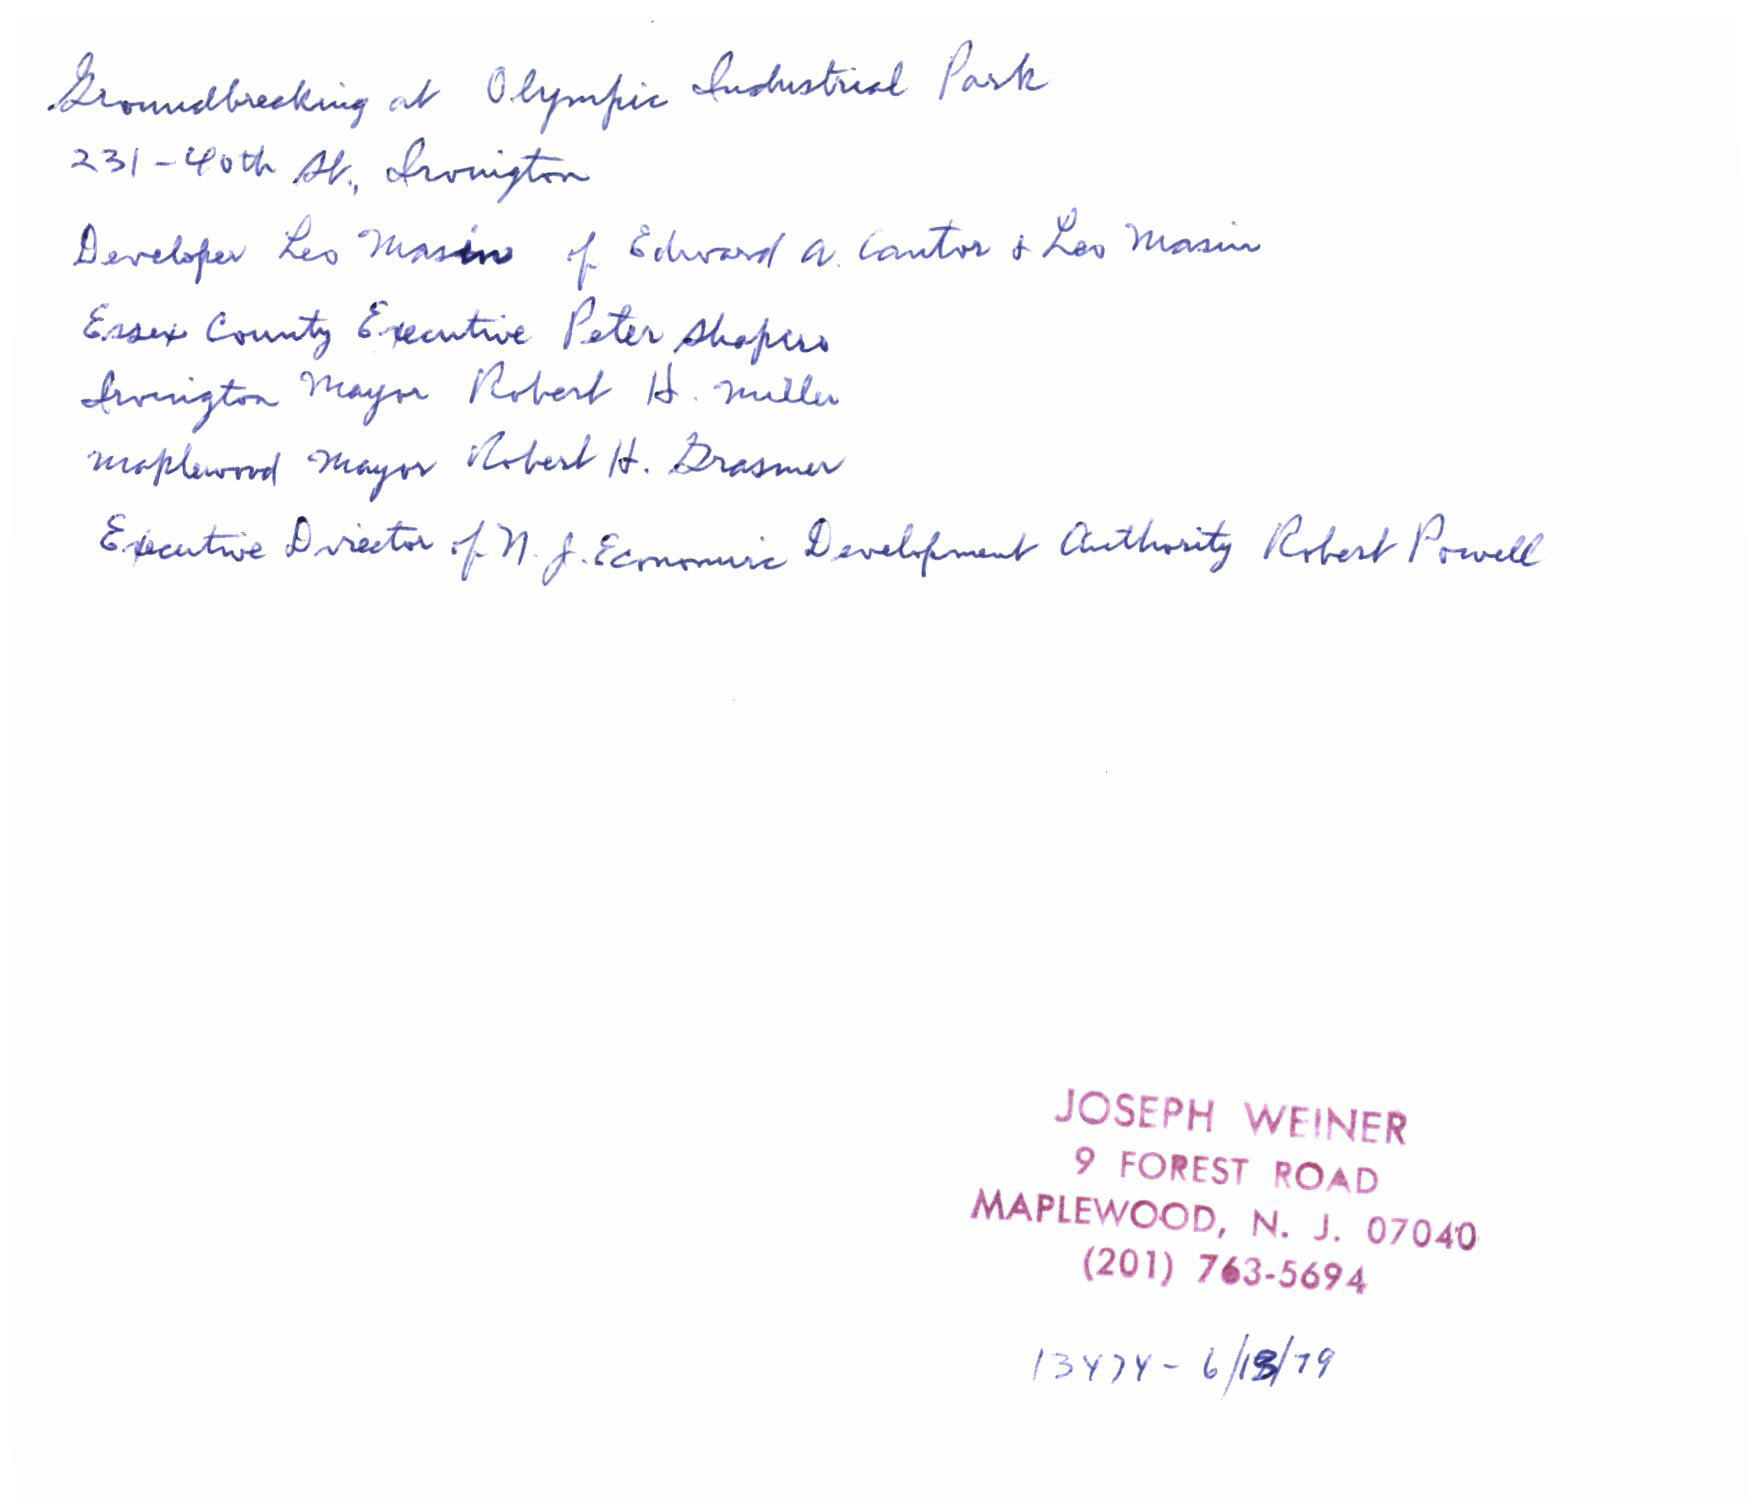 Groundbreaking at Olympic Industrial Park
231-40th St., Irvington
Developer Leo Masin of Edward A. Cantor & Leo Masin
Essex County Executive Peter Shapiro
Irvington Mayor Robert H. Miller
Maplewood Mayor Robert H. Grasmer
Executive Director of N.J. Economic Development Authority Robert Powell
JOSEPH WEINER
9 FOREST ROAD
MAPLEWOOD, N. J. 07040
(201) 763-5694
13474 - 6/13/79